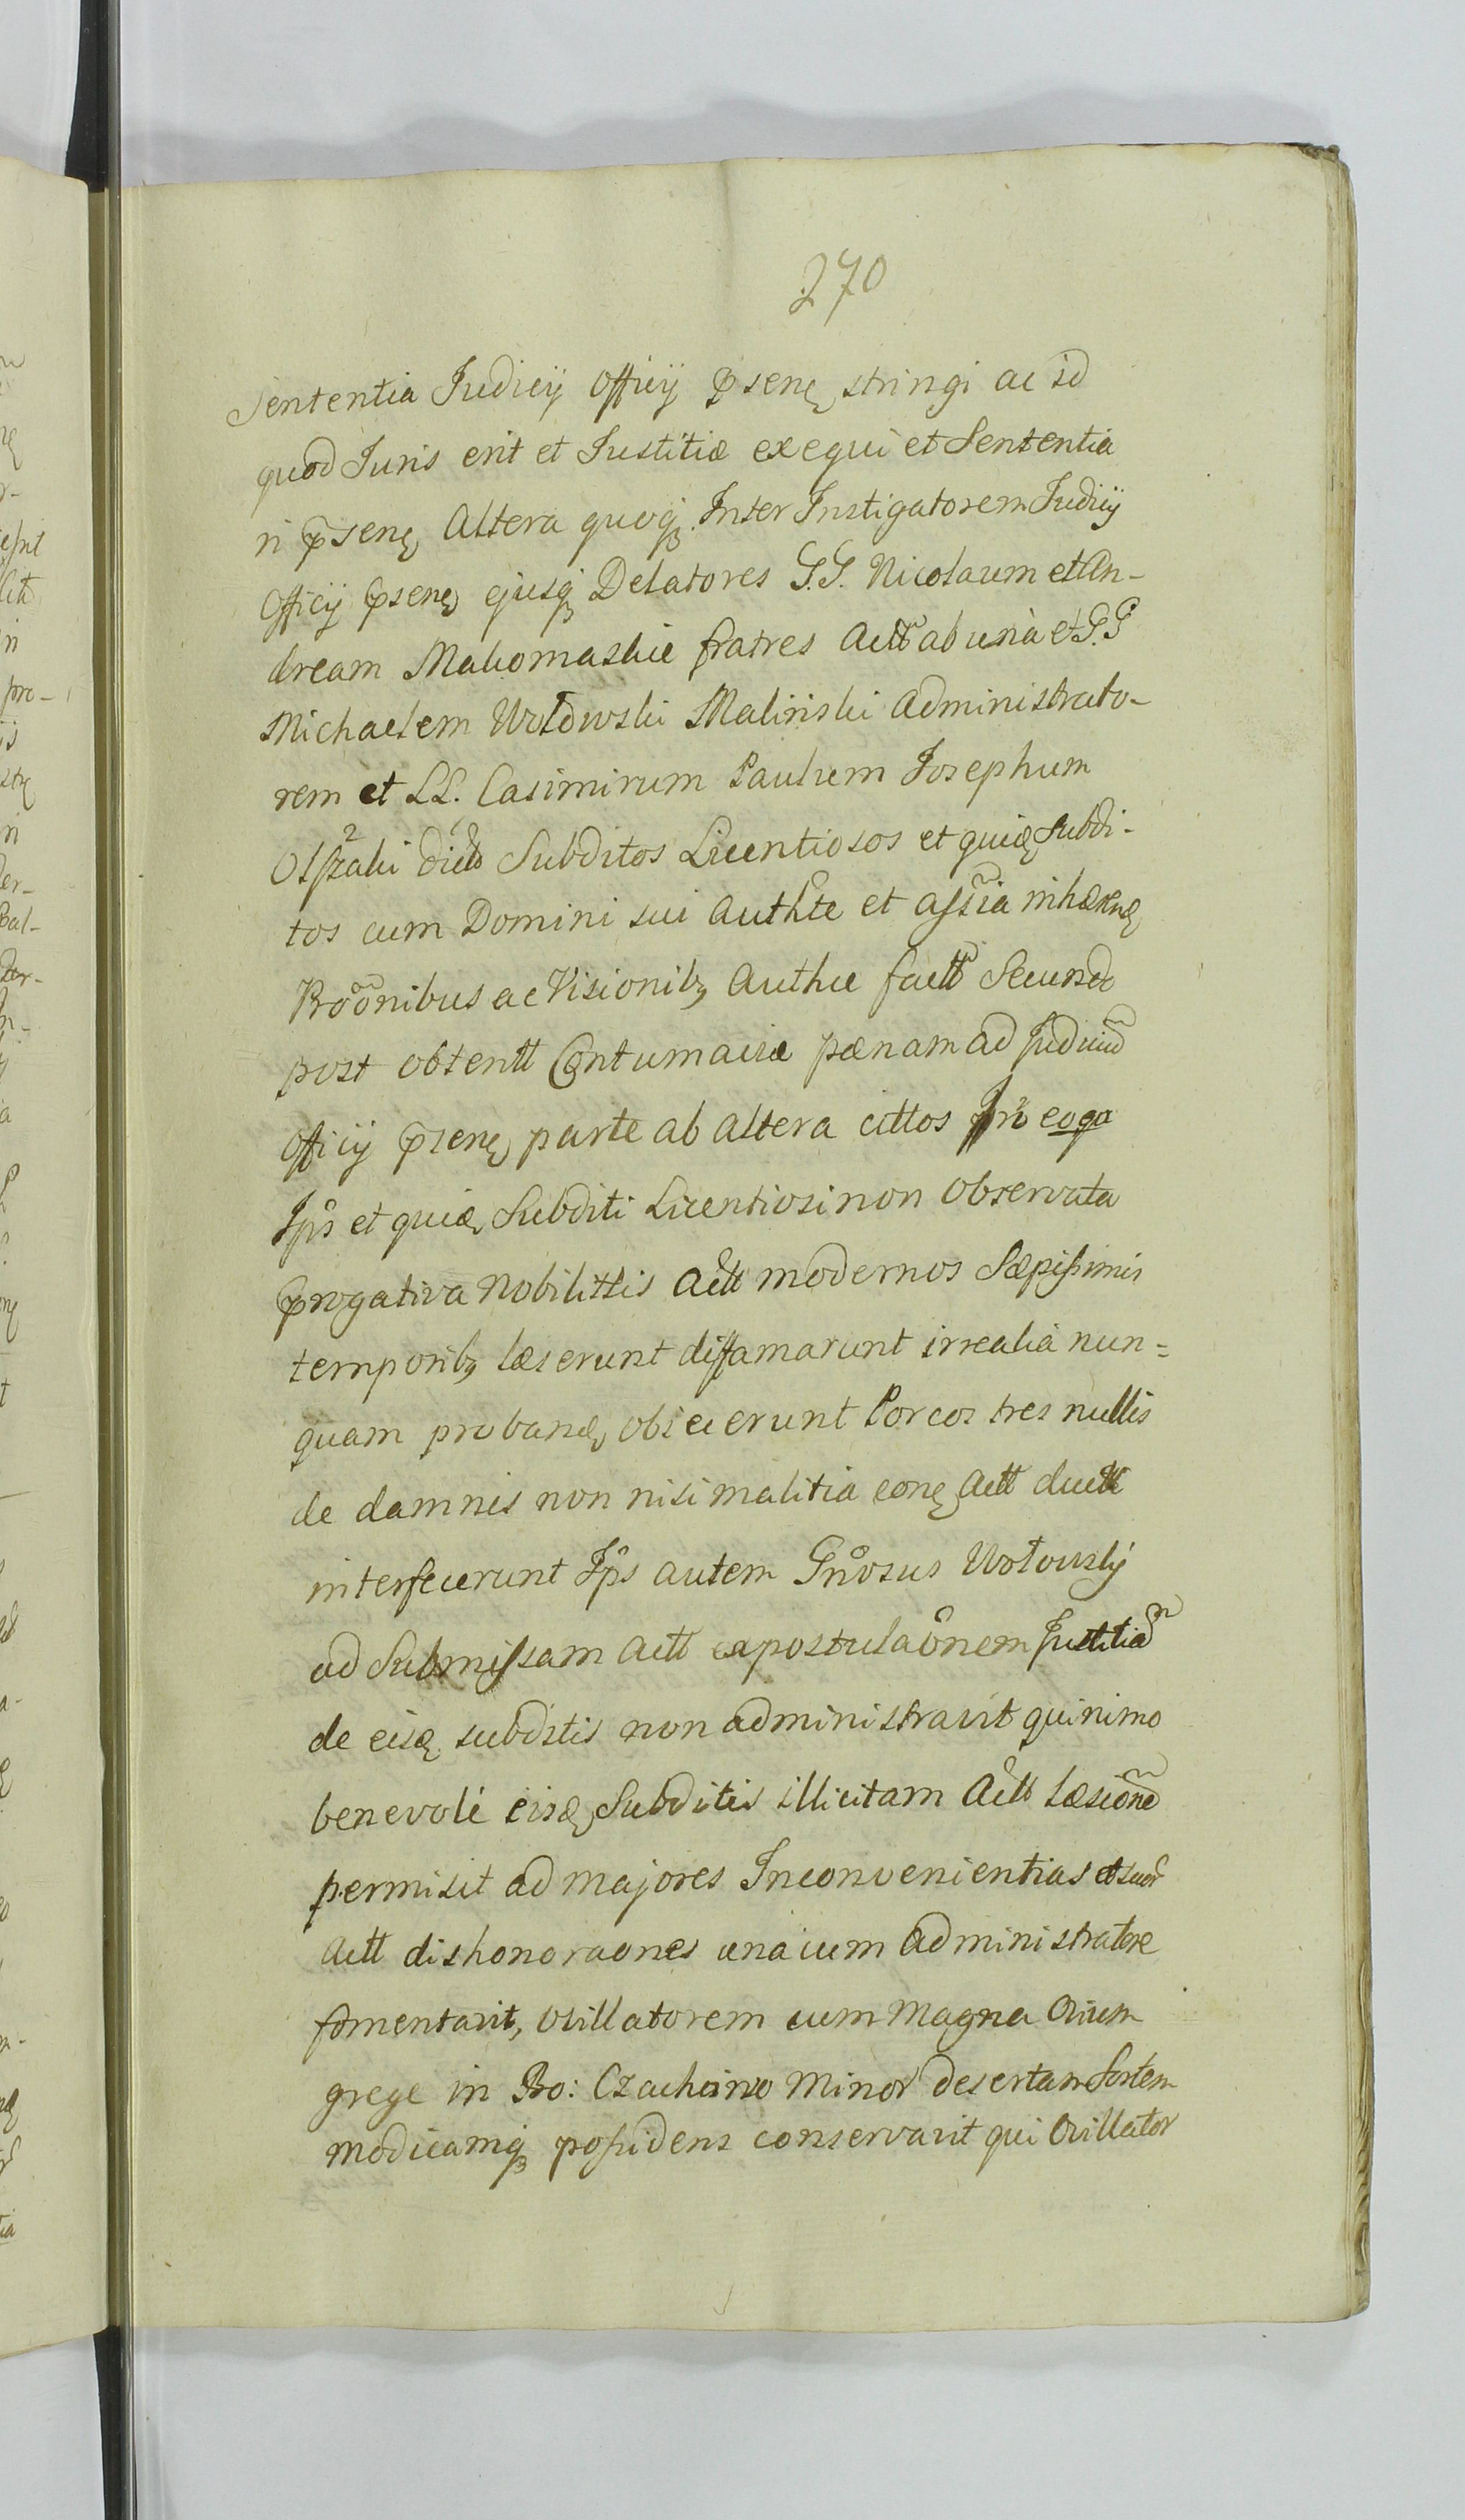 270
Sententia Judicij Officij pseñ stringi ac id
quod Juris erit et Justitiæ exequi et Sententia
ri pseñ Altera quoq Inter Instigatorem Judicij
Officij pseñ ejusq Delatores G.G. Nicolaum et An-
dream Makomaskie fratres Actt ab unà et G.G
Michaelem Wołowski Maliński Administrato-
rem et LL. Casimirum Paulum Josephum
dictt Subditos Licentiosos et Subdi-
tos cum Domini sui Authte et assia
Proonibus ac Visionibq Authce factt Secundo
post obtentt Contumaciæ pænam ad Judiciũ
Officij pseñ parte ab altera cittos Pro eo qa
Ips et Subditi Licentiosi non observata
progativa Nobilittis Actt modernos Sæpissimis
temporibq læserunt diffamarunt irrealia nun=
quam proband obiecerunt Porcos tres nullis
de damnis non nisi malitia conc Actt ductt
interfecerunt Ips autem Gnosus Wołowsky
ad Submissam Actt expostulaonem Justitiã
de eisd subditis non administravit quinimo
benevolè eisd Subditis illicitam Actt læsionẽ
permisit ad majores Inconvenientias et suor
Actt dishonoraones una cum Administratore
fomentavit, Ovillatorem cum magna Ovium
grege in Bo: Czachowo Minor desertam Sortem
modicamq possidens conservavit qui Ovillator